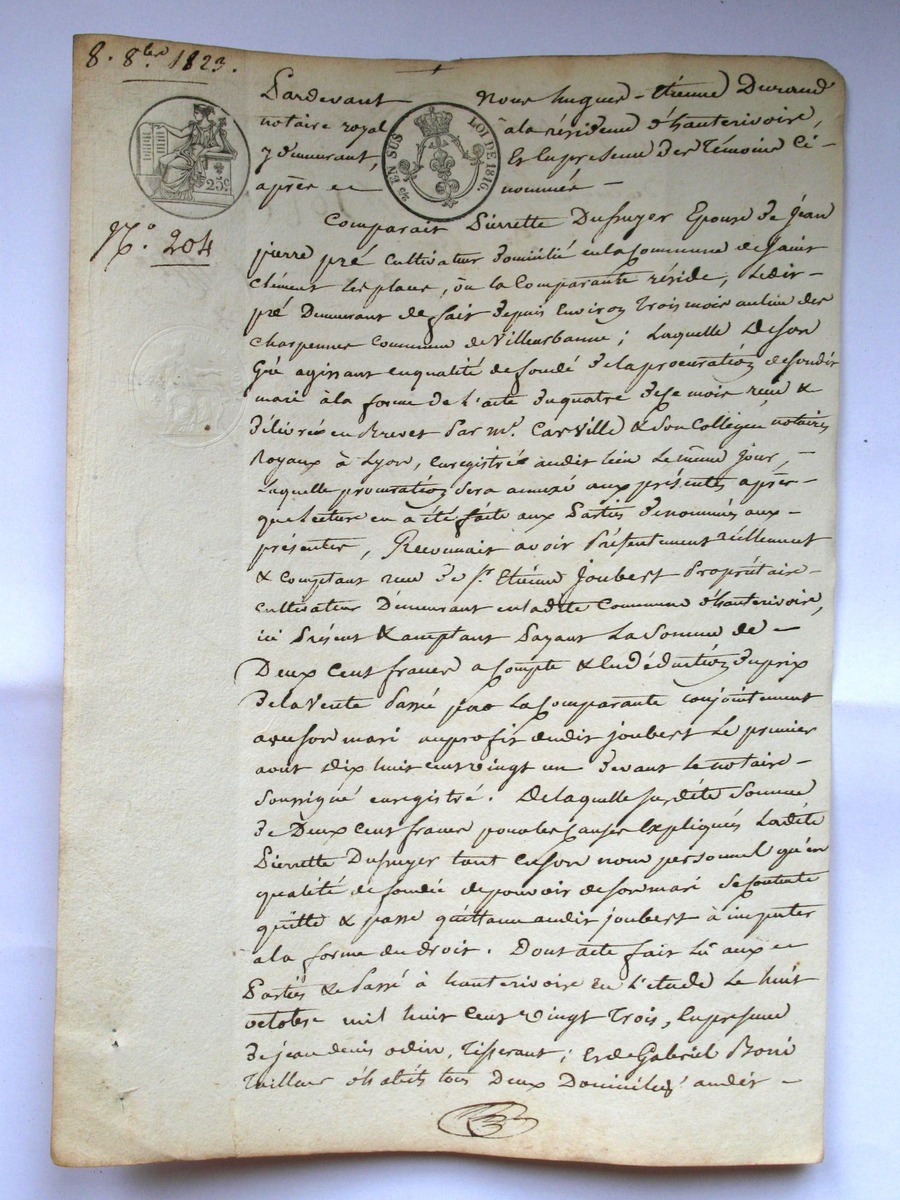 8. 8bre 1823.
Pardevant Nous hugues-Etienne Durand
notaire royal à la résidence d'hauterivoire,
y demeurant, En la presence des Témoins Ci-
après nommés -
25c
EN SUS
LOI DE 1816.
N.° 204
Comparait Pierrette Dussuyer Epouse de Jean
pierre pré Cultivateur Domicilié en la Commune de Saint
Clément les places, ou la Comparante réside, Ledit -
pré Demeurant de fait depuis Environ Trois mois au lieu des
Charpennes Commune de Villeurbanne; Laquelle De son
Gré agissant en qualité de fondé de la procuration de son dit
mari à la forme de l'acte du quatre de ce mois reçu &
délivrée en Brevet Par me. Carville & Son Collégue notaires
Royaux à Lyon, Enregistrée audit lieu Le même Jour, -
Laquelle procuration sera annexé aux présentes après-
que Lecture en a été faite aux Parties Denommés aux-
présentes, Reconnait avoir Présentement réellement
& comptant reçu de Sr. Etienne Joubert Propriétaire-
Cultivateur Demeurant en ladite Commune d'hauterivoire,
ici Présent & acceptant Payant La Somme de -
Deux Cent francs a Compte & En Déduction du prix
de la Vente Passé par La Comparante Conjointement
avec son mari au profit dudit joubert Le premier
aout Dix huit cent vingt un devant Le notaire -
Soussigné enregistré. De laquelle susdite Somme
de Deux Cent francs pour les Causes Expliqués Ladite
Pierrette Dussuyer tant en son nom personnel qu'en
qualité de fondée de pouvoir de son mari Se Contente
quitte & passe quittance audit joubert à imputer
a la forme du droit. Dont acte fait Lû aux
Parties & Passé à hauterivoire En L'étude Le huit
octobre mil huit Cent vingt Trois, En présence
de jean denis odin, Tisserant; Et de Gabriel Boni
Tailleur d'habits tous Deux Domiciliés audit -